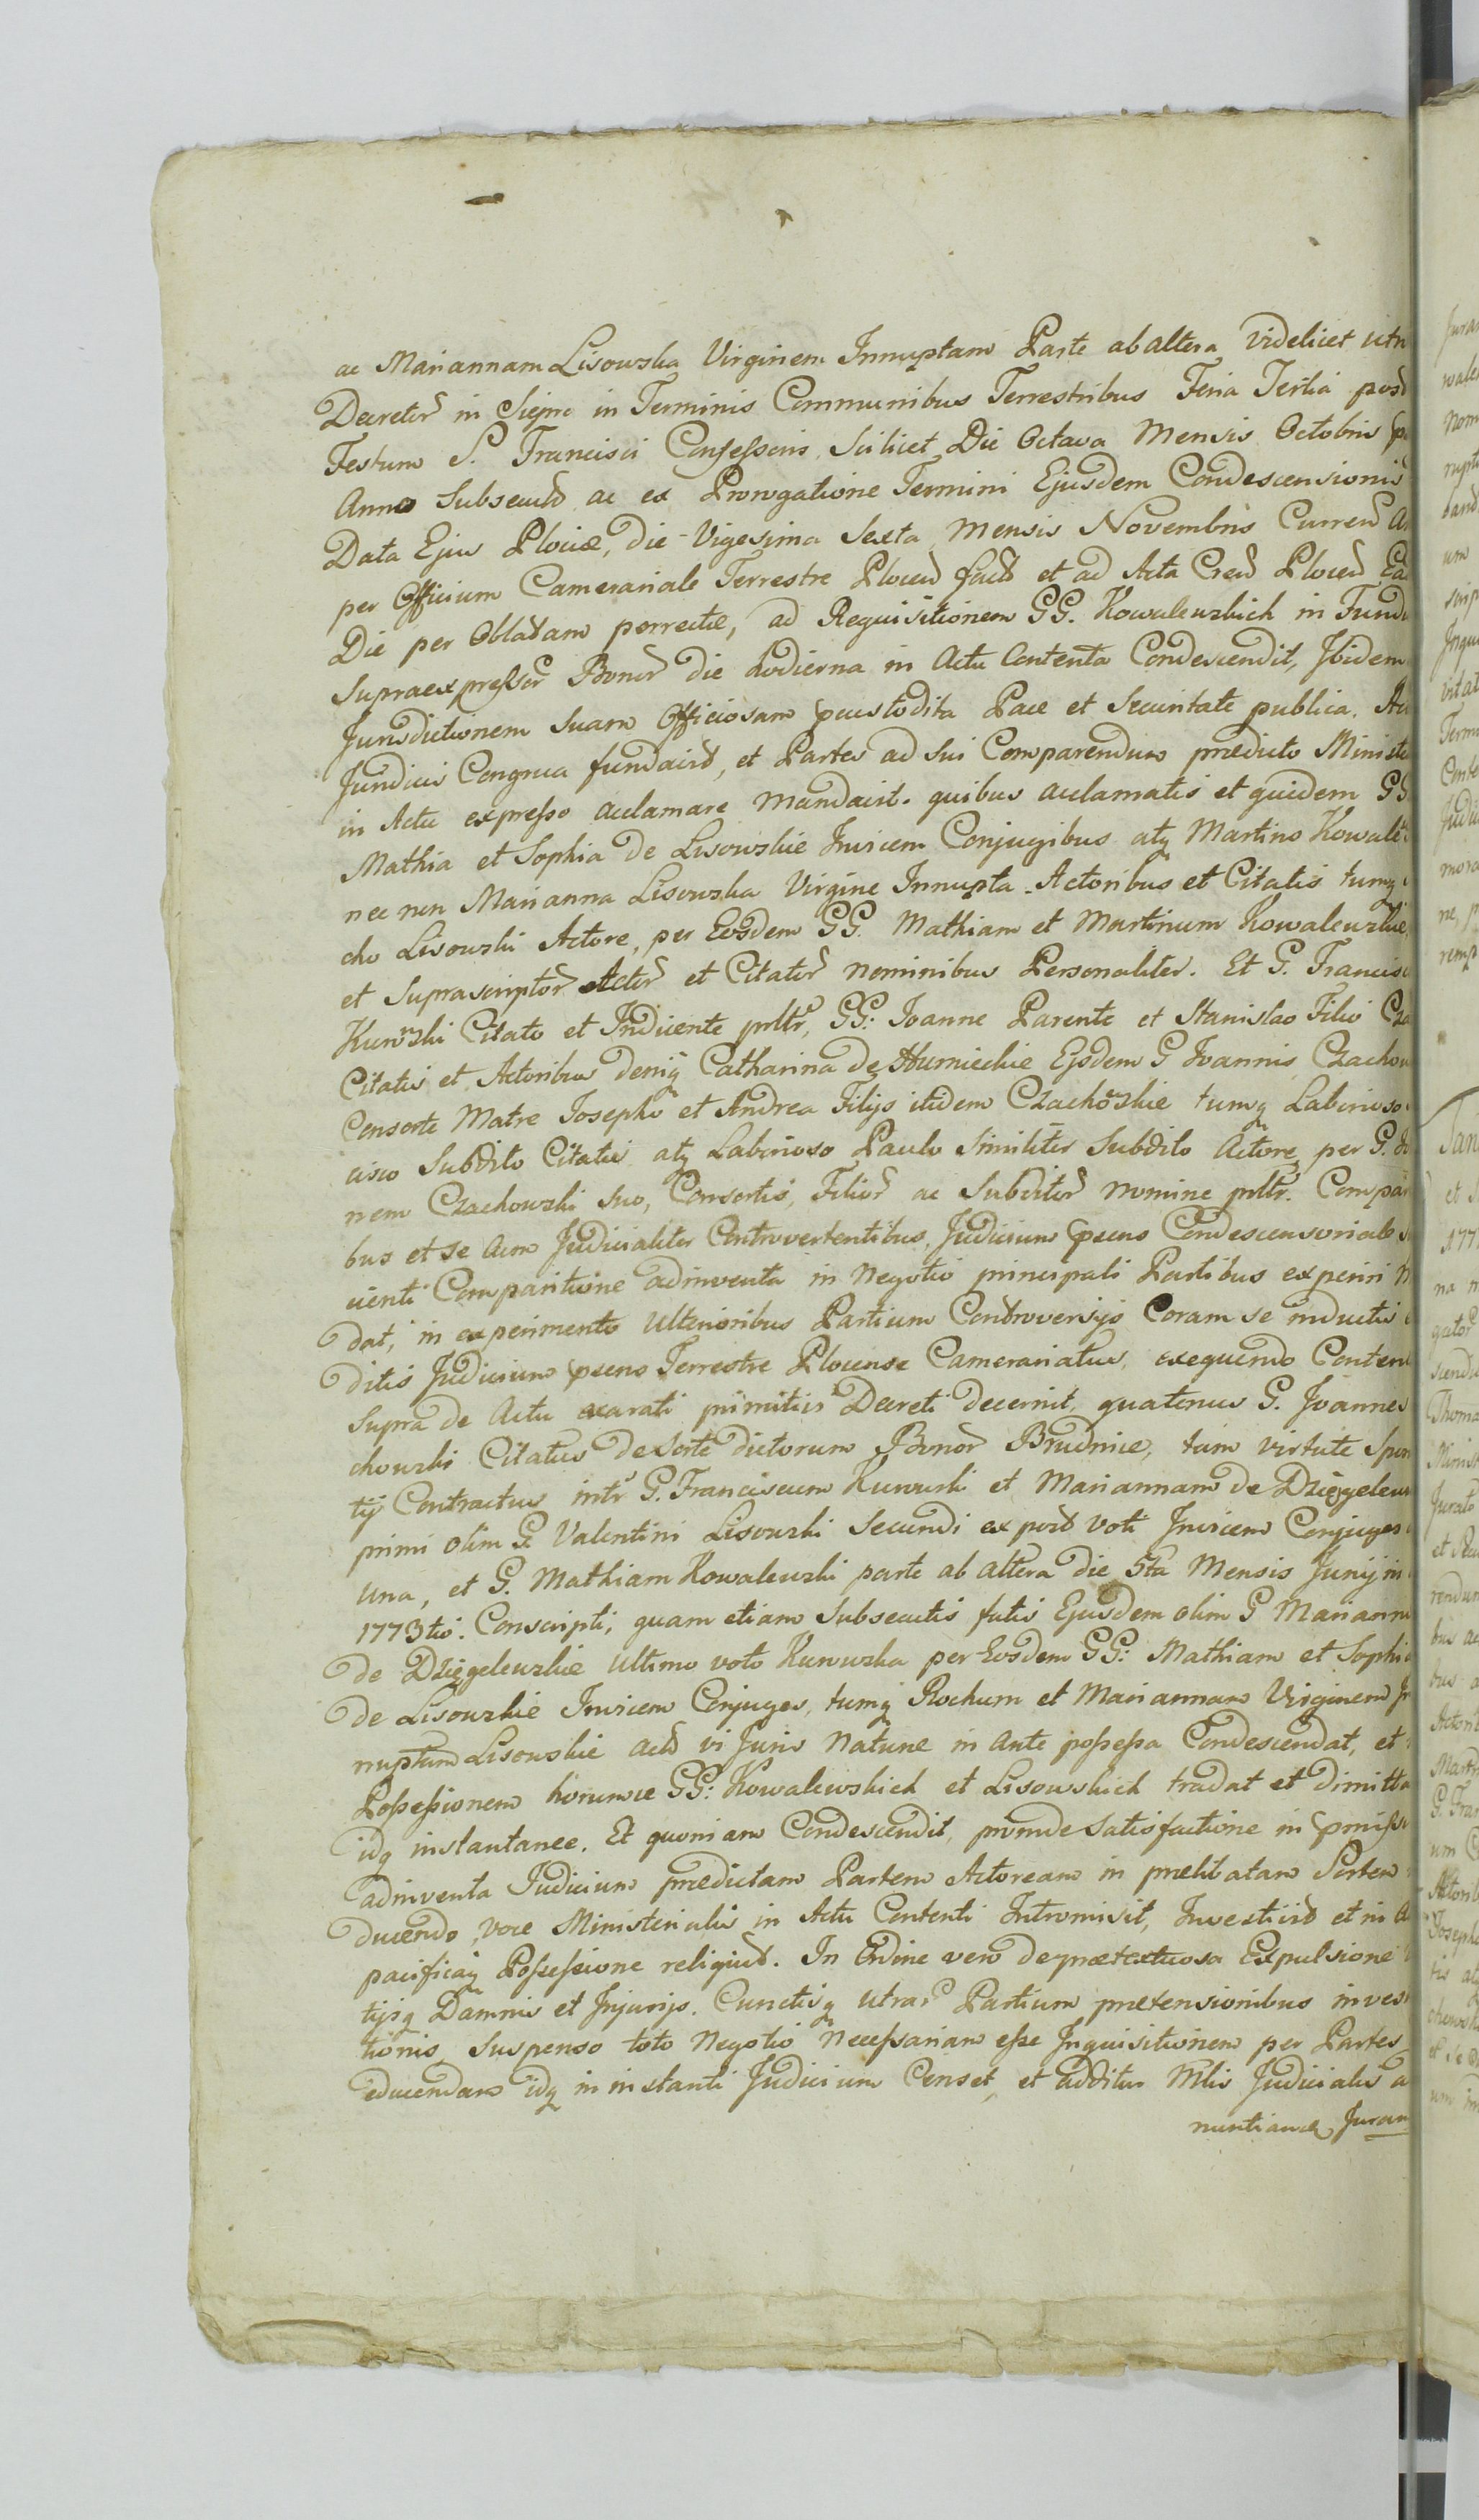 ac Mariannam Lisowska Virginem Innuptam Parte ab altera videlicet utr
Decretor in Siepro in Terminis Communibus Terrestribus Feria Tertia post
Festum S. Francisci Confessoris Scilicet Die Octava Mensis Octobris
Anno Subsecuto ac ex Prorogatione Termini Ejusdem Condescensionis
Data Ejus Plociæ, die Vigesima Sexta Mensis Novembris Curren
per Officium Camerariale Terrestre Plocen fact et ad Acta Cren Plocen Ea
Die per Oblatam porrectæ, ad Requisitionem GG. Kowalewskich in Fund
Supraexpressor Bonor die hodierna in Actu Contenta Condescendit, Ibidem
Jurisdictionem Suam Officiosam pcustodita Pace et Securitate publica.
Jundici Congrua fundavit, et Partes ad sui Comparendum prædicto Ministe
in Actu expresso acclamare mandavit. quibus acclamatis et quidem GG
Mathia et Sophia de Lisowskie Invicem Conjugibus atq Martino Kowale
nec non Marianna Lisowska Virgine Innupta Actoribus et Citatis tumq
cho Lisowski Actore, per Eosdem GG. Mathiam et Martinum Kowalewskie
et Suprascriptor Actor et Citator nominibus Personaliter. Et G. Francis
Kurowski Citato et Indicente pnltr, GG: Joanne Parente et Stanislao Filio Cza
Citatis et Actoribus deniq Catharina de Humieckie Ejsdem G Joannis Czachow
Consorte Matre Josepho et Andrea Filijs itidem Czachowskie tumq Laborioso
cisco Subdito Citatis atq Laborioso Paulo Similiter Subdito Actore per G.
nem Czachowski suo, Consortis, Filior ac Subditor nomine pnltr. Compar
bus et se acm Judicialiter Controvertentibus, Judicium psens Condescensoriale
cienti Comparitione adinventa in Negotio principali Partibus experiri
dat, in experimento Ulterioribus Partium Controversijs Coram se inductis
ditis Judicium psens Terrestre Plocense Camerariatus, exequendo Conten
Supra de Actu exarati primitivi Decreti decernit, quatenus G. Joannes
chowski Citatus de Sorte dictorum Bonor Brudnice, tam virtute Spon
tij Contractus intr G. Franciscum Kurowski et Mariannam de Dzięgelew
primi olim G. Valentini Lisowski Secundi ex post voti Invicem Conjuges
una, et G. Mathiam Kowalewski parte ab altera die 5ta Mensis Junij in
1773tio. Conscripti, quam etiam Subsecutis fatis Ejusdem olim G Mariann
de Dzięgelewskie Ultimo voto Kurowska per Eosdem GG: Mathiam et Sophia
de Lisowskie Invicem Conjuges, tumq Rochum et Mariannam Virginem In
nuptam Lisowskie act vi Juris Naturæ in Ante possessa Condescendat, et
Possessionem horumce GG: Kowalewskich et Lisowskich tradat et dimitta
idq instantanee. Et quoniam Condescendit, proinde Satisfactione in pmiss
adinventa Judicium prædictam Partem Actoream in prælibatam Sortem
ducendo, voce Ministerialis in Actu Contenti Intromisit, Investivit et in
pacificaq Possessione reliquit. In Ordine vero deprætextuosa Expulsione
tijsq Damnis et Injurijs. Cunctisq utrar Partium prætensionibus inves
tionis, Suspenso toto Negotio Necessariam esse Inquisitionem per Partes
educendam idq in instanti Judicium Censet, et additur Mlis Judicialis a
nuntiandæ Juram